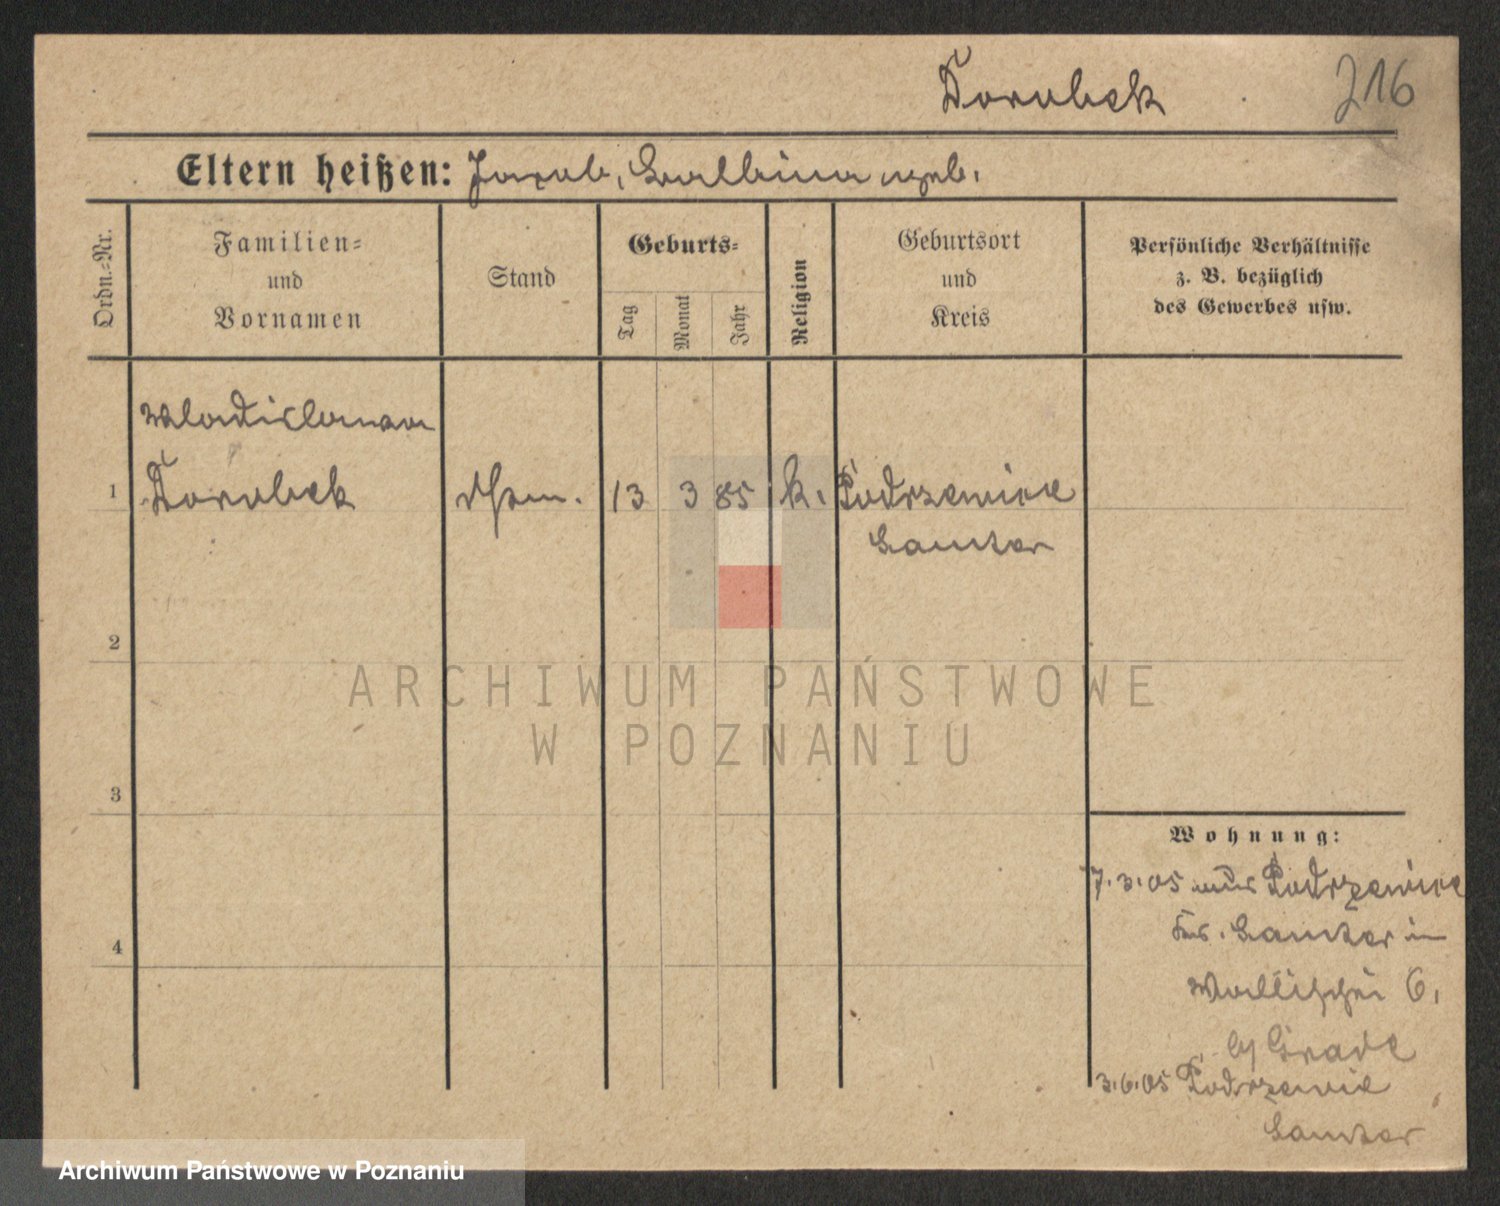 Dorobek 216
Eltern heißen: Jacob, Balbina geb.
Ordn.=Nr.
Familien=
und
Vornamen
Stand
Geburts=
Tag
Monat
Jahr
Religion
Geburtsort
und
Kreis
Persönliche Verhältnisse
z. B. bezüglich
des Gewerbes usw.
Wladislawa
1 Dorobek 13 3 85 k. Podrzewice
Samter
2
3
4
Wohnung:
7.3.05 aus Podrzewice
Krs. Samter in
Wallischei 6,
b/ Grade
3.6.05 Podrzewie
Samter
ARCHIWUM PAŃSTWOWE
W POZNANIU
Archiwum Państwowe w Poznaniu